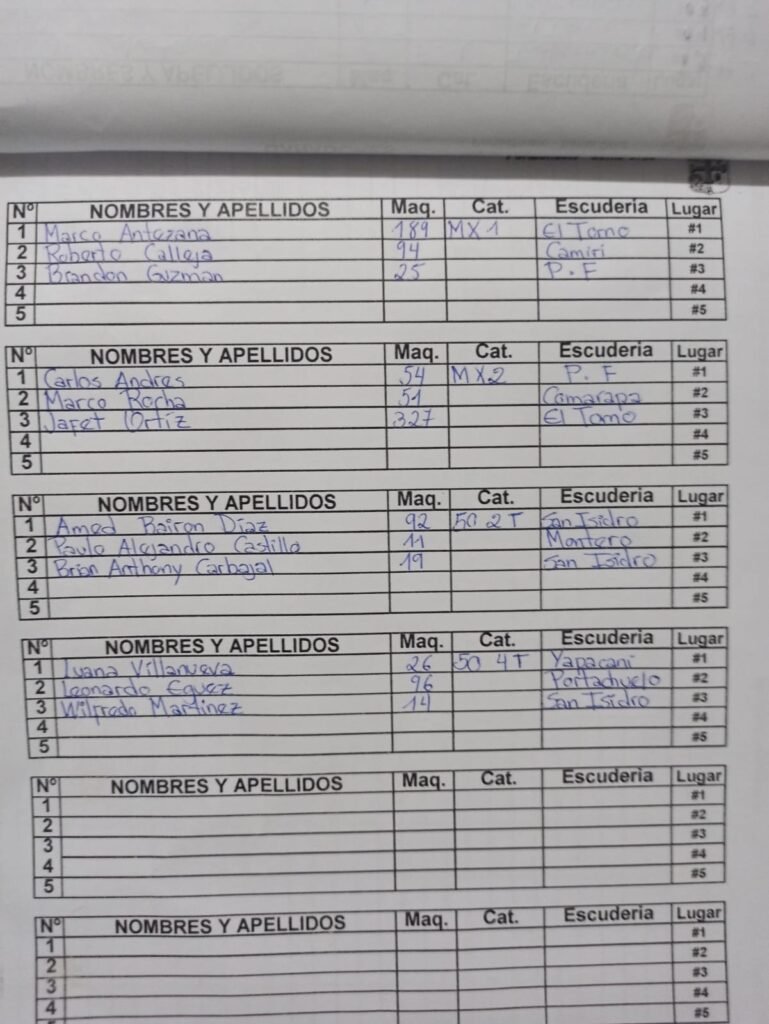 Nº NOMBRES Y APELLIDOS Maq. Cat. Escuderia Lugar
1 Marco Antezana 189 MX1 El Torno #1
2 Roberto Calleja 94 Camiri #2
3 Brandon Guzman 25 P.F #3
4 #4
5 #5
Nº NOMBRES Y APELLIDOS Maq. Cat. Escuderia Lugar
1 Carlos Andres 54 MX2 P.F #1
2 Marco Rocha 51 Comarapa #2
3 Jafet Ortiz 327 El Torno #3
4 #4
5 #5
Nº NOMBRES Y APELLIDOS Maq. Cat. Escuderia Lugar
1 Amed Bairon Diaz 92 50 2T San Isidro #1
2 Paulo Alejandro Castillo 11 Montero #2
3 Brian Anthony Carbajal 19 San Isidro #3
4 #4
5 #5
Nº NOMBRES Y APELLIDOS Maq. Cat. Escuderia Lugar
1 Luana Villanueva 26 50 4T Yapacani #1
2 Leonardo Eguez 96 Portachuelo #2
3 Wilfredo Martinez 14 San Isidro #3
4 #4
5 #5
Nº NOMBRES Y APELLIDOS Maq. Cat. Escuderia Lugar
1 #1
2 #2
3 #3
4 #4
5 #5
Nº NOMBRES Y APELLIDOS Maq. Cat. Escuderia Lugar
1 #1
2 #2
3 #3
4 #4
#5